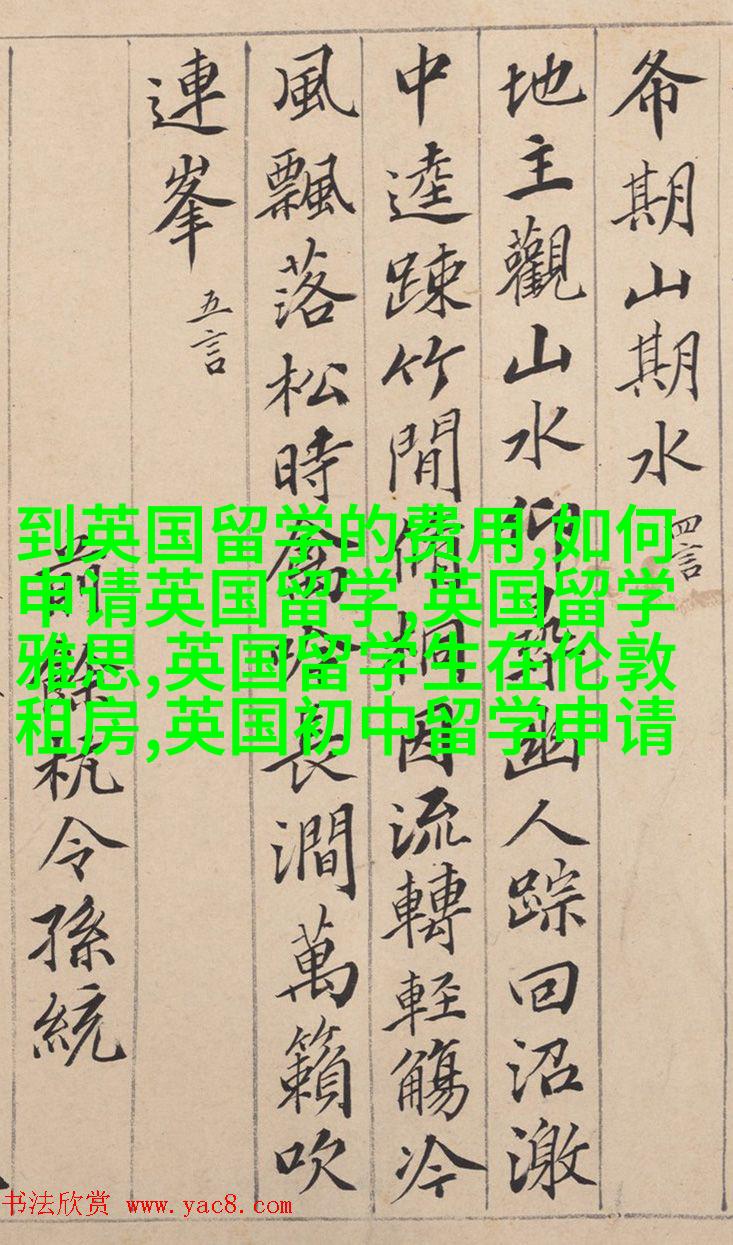 希期山期水 四言
地主觀山水仰尋幽人踪回沼激
中逵踈竹間脩桐因流轉輕觴冷
風飄落松時禽吟長澗萬籟吹
連峯 五言
前餘杭令孫統
到英国留学的费用,如何
申请英国留学,英国留学
雅思,英国留学生在伦敦
租房,英国初中留学申请
书法欣赏 www.yac8.com